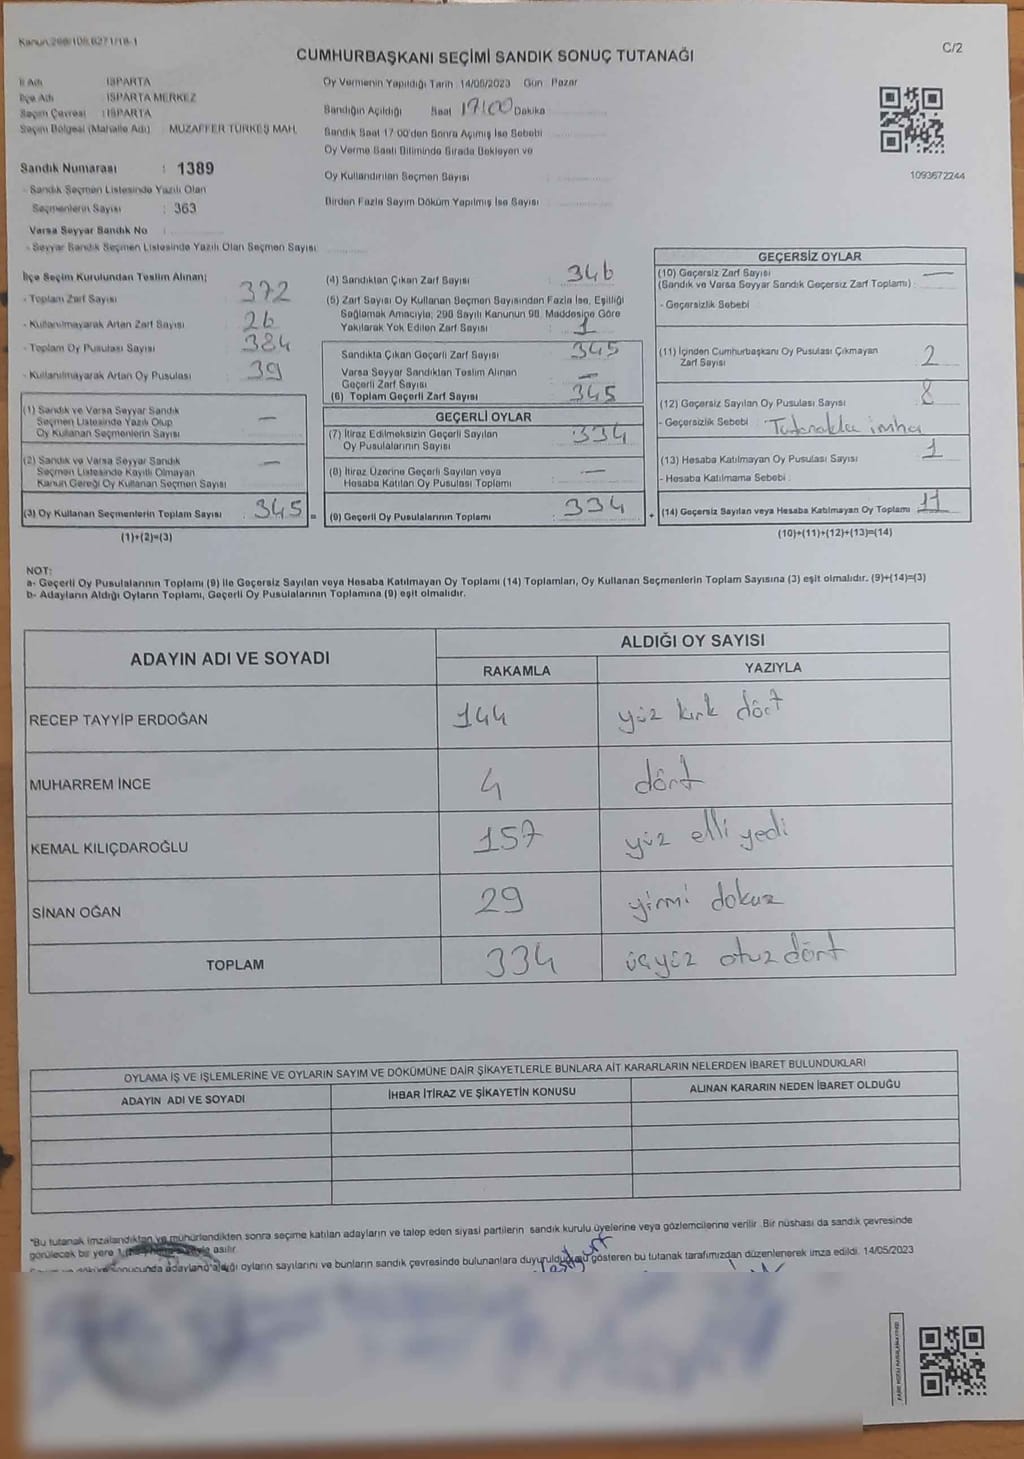 Kanun:298/105,6271/18-1
CUMHURBAŞKANI SEÇİMİ SANDIK SONUÇ TUTANAĞI
C/2
İl Adı : ISPARTA
İlçe Adı : ISPARTA MERKEZ
Seçim Çevresi : ISPARTA
Seçim Bölgesi (Mahalle Adı) : MUZAFFER TÜRKEŞ MAH.
Sandık Numarası : 1389
- Sandık Seçmen Listesinde Yazılı Olan
Seçmenlerin Sayısı : 363
Varsa Seyyar Sandık No :
- Seyyar Sandık Seçmen Listesinde Yazılı Olan Seçmen Sayısı:
Oy Vermenin Yapıldığı Tarih : 14/05/2023 Gün : Pazar
Sandığın Açıldığı Saat 17:00 Dakika
Sandık Saat 17:00'den Sonra Açımış İse Sebebi
Oy Verme Saati Bitiminde Sırada Bekleyen ve
Oy Kullandırılan Seçmen Sayısı
Birden Fazla Sayım Döküm Yapılmış İse Sayısı
1093672244
İlçe Seçim Kurulundan Teslim Alınan;
- Toplam Zarf Sayısı : 372
- Kullanılmayarak Artan Zarf Sayısı : 26
- Toplam Oy Pusulası Sayısı : 384
- Kullanılmayarak Artan Oy Pusulası : 39
(1) Sandık ve Varsa Seyyar Sandık
Seçmen Listesinde Yazılı Olup
Oy Kullanan Seçmenlerin Sayısı : —
(2) Sandık ve Varsa Seyyar Sandık
Seçmen Listesinde Kayıtlı Olmayan
Kanun Gereği Oy Kullanan Seçmen Sayısı : —
(3) Oy Kullanan Seçmenlerin Toplam Sayısı : 345 =
(1)+(2)=(3)
(4) Sandıktan Çıkan Zarf Sayısı : 346
(5) Zarf Sayısı Oy Kullanan Seçmen Sayısından Fazla İse, Eşitliği
Sağlamak Amacıyla; 298 Sayılı Kanunun 98. Maddesine Göre
Yakılarak Yok Edilen Zarf Sayısı : 1
Sandıkta Çıkan Geçerli Zarf Sayısı : 345
Varsa Seyyar Sandıktan Teslim Alınan
Geçerli Zarf Sayısı : —
(6) Toplam Geçerli Zarf Sayısı : 345
GEÇERLİ OYLAR
(7) İtiraz Edilmeksizin Geçerli Sayılan
Oy Pusulalarının Sayısı : 334
(8) İtiraz Üzerine Geçerli Sayılan veya
Hesaba Katılan Oy Pusulası Toplamı : —
(9) Geçerli Oy Pusulalarının Toplamı : 334 +
GEÇERSİZ OYLAR
(10) Geçersiz Zarf Sayısı : —
(Sandık ve Varsa Seyyar Sandık Geçersiz Zarf Toplamı) :
- Geçersizlik Sebebi :
(11) İçinden Cumhurbaşkanı Oy Pusulası Çıkmayan
Zarf Sayısı : 2
(12) Geçersiz Sayılan Oy Pusulası Sayısı : 8
- Geçersizlik Sebebi : Tutanakla imha
(13) Hesaba Katılmayan Oy Pusulası Sayısı : 1
- Hesaba Katılmama Sebebi :
(14) Geçersiz Sayılan veya Hesaba Katılmayan Oy Toplamı : 11
(10)+(11)+(12)+(13)=(14)
NOT:
a- Geçerli Oy Pusulalarının Toplamı (9) ile Geçersiz Sayılan veya Hesaba Katılmayan Oy Toplamı (14) Toplamları, Oy Kullanan Seçmenlerin Toplam Sayısına (3) eşit olmalıdır. (9)+(14)=(3)
b- Adayların Aldığı Oyların Toplamı, Geçerli Oy Pusulalarının Toplamına (9) eşit olmalıdır.
ADAYIN ADI VE SOYADI ALDIĞI OY SAYISI
RAKAMLA YAZIYLA
RECEP TAYYİP ERDOĞAN 144 yüz kırk dört
MUHARREM İNCE 4 dört
KEMAL KILIÇDAROĞLU 157 yüz elli yedi
SİNAN OĞAN 29 yirmi dokuz
TOPLAM 334 üçyüz otuz dört
OYLAMA İŞ VE İŞLEMLERİNE VE OYLARIN SAYIM VE DÖKÜMÜNE DAİR ŞİKAYETLERLE BUNLARA AİT KARARLARIN NELERDEN İBARET BULUNDUKLARI
ADAYIN ADI VE SOYADI İHBAR İTİRAZ VE ŞİKAYETİN KONUSU ALINAN KARARIN NEDEN İBARET OLDUĞU
*Bu tutanak imzalandıktan ve mühürlendikten sonra seçime katılan adayların ve talep eden siyasi partilerin sandık kurulu üyelerine veya gözlemcilerine verilir. Bir nüshası da sandık çevresinde
görülecek bir yere asılır.
oyların sayılarını ve bunların sandık çevresinde bulunanlara duyurulduğunu gösteren bu tutanak tarafımızdan düzenlenerek imza edildi. 14/05/2023